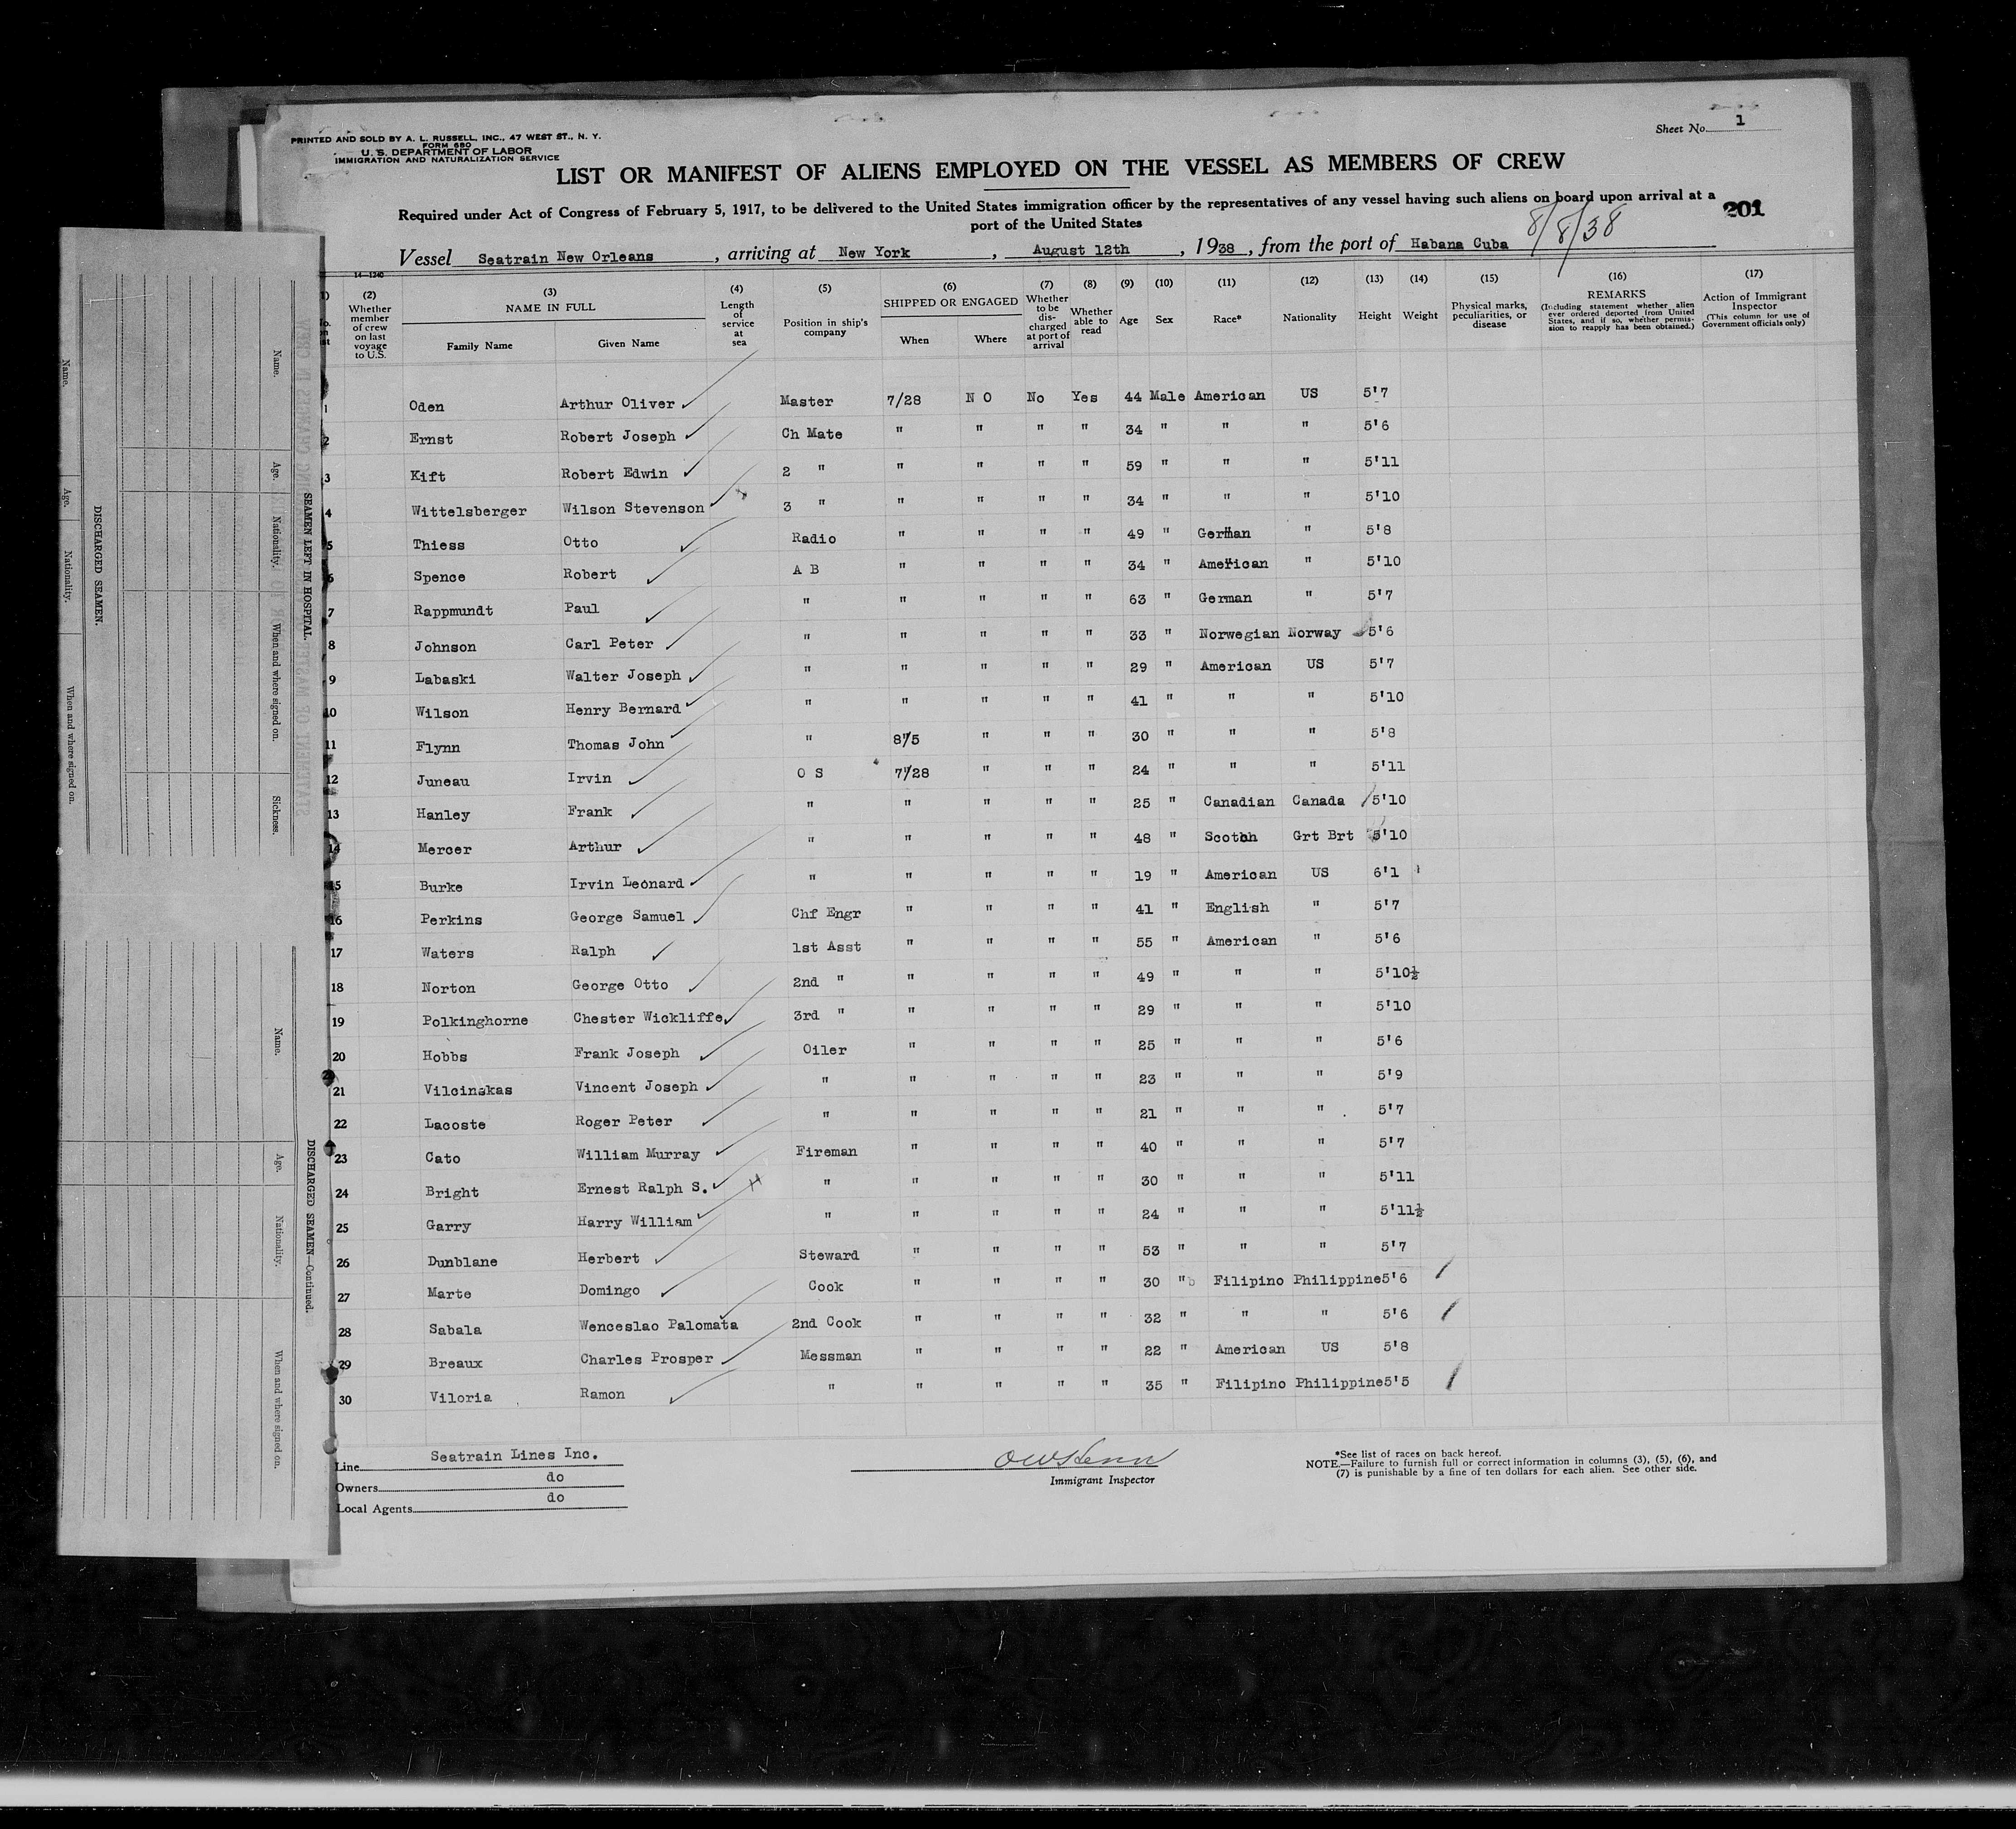 PRINTED AND SOLD BY A. L. RUSSELL, INC., 47 WEST ST., N. Y.
FORM 680
U. S. DEPARTMENT OF LABOR
IMMIGRATION AND NATURALIZATION SERVICE
Sheet No. 1
LIST OR MANIFEST OF ALIENS EMPLOYED ON THE VESSEL AS MEMBERS OF CREW
Required under Act of Congress of February 5, 1917, to be delivered to the United States immigration officer by the representatives of any vessel having such aliens on board upon arrival at a
port of the United States
201
8/8/38
Vessel Seatrain New Orleans, arriving at New York, August 12th, 1938, from the port of Habana Cuba
14—1240
(2) Whether member of crew on last voyage to U.S.
(3) NAME IN FULL Family Name Given Name
(4) Length of service at sea
(5) Position in ship's company
(6) SHIPPED OR ENGAGED When Where
(7) Whether to be discharged at port of arrival
(8) Whether able to read
(9) Age
(10) Sex
(11) Race*
(12) Nationality
(13) Height
(14) Weight
(15) Physical marks, peculiarities, or disease
(16) REMARKS (Including statement whether alien ever ordered deported from United States, and if so, whether permission to reapply has been obtained.)
(17) Action of Immigrant Inspector (This column for use of Government officials only)
1 Oden Arthur Oliver Master 7/28 N O No Yes 44 Male American US 5'7
2 Ernst Robert Joseph Ch Mate " " " " 34 " " " 5'6
3 Kift Robert Edwin 2 " " " " " 59 " " " 5'11
4 Wittelsberger Wilson Stevenson 3 " " " " " 34 " " " 5'10
5 Thiess Otto Radio " " " " 49 " German " 5'8
6 Spence Robert A B " " " " 34 " American " 5'10
7 Rappmundt Paul " " " " " 63 " German " 5'7
8 Johnson Carl Peter " " " " " 33 " Norwegian Norway 5'6
9 Labaski Walter Joseph " " " " " 29 " American US 5'7
10 Wilson Henry Bernard " " " " " 41 " " " 5'10
11 Flynn Thomas John " 8/5 " " " 30 " " " 5'8
12 Juneau Irvin O S 7/28 " " " 24 " " " 5'11
13 Hanley Frank " " " " " 25 " Canadian Canada 5'10
14 Mercer Arthur " " " " " 48 " Scotch Grt Brt 5'10
15 Burke Irvin Leonard " " " " " 19 " American US 6'1
16 Perkins George Samuel Chf Engr " " " " 41 " English " 5'7
17 Waters Ralph 1st Asst " " " " 55 " American " 5'6
18 Norton George Otto 2nd " " " " " 49 " " " 5'10½
19 Polkinghorne Chester Wickliffe 3rd " " " " " 29 " " " 5'10
20 Hobbs Frank Joseph Oiler " " " " 25 " " " 5'6
21 Vilcinskas Vincent Joseph " " " " " 23 " " " 5'9
22 Lacoste Roger Peter " " " " " 21 " " " 5'7
23 Cato William Murray Fireman " " " " 40 " " " 5'7
24 Bright Ernest Ralph S. " " " " " 30 " " " 5'11
25 Garry Harry William " " " " " 24 " " " 5'11½
26 Dunblane Herbert Steward " " " " 53 " " " 5'7
27 Marte Domingo Cook " " " " 30 " Filipino Philippine 5'6
28 Sabala Wenceslao Palomata 2nd Cook " " " " 32 " " " 5'6
29 Breaux Charles Prosper Messman " " " " 22 " American US 5'8
30 Viloria Ramon " " " " " 35 " Filipino Philippine 5'5
Line Seatrain Lines Inc.
Owners do
Local Agents do
Immigrant Inspector
*See list of races on back hereof.
NOTE.—Failure to furnish full or correct information in columns (3), (5), (6), and
(7) is punishable by a fine of ten dollars for each alien. See other side.
SEAMEN LEFT IN HOSPITAL.
Name. Age. Nationality. When and where signed on. Sickness.
DISCHARGED SEAMEN.
Name. Age. Nationality. When and where signed on.
DISCHARGED SEAMEN—Continued.
Name. Age. Nationality. When and where signed on.